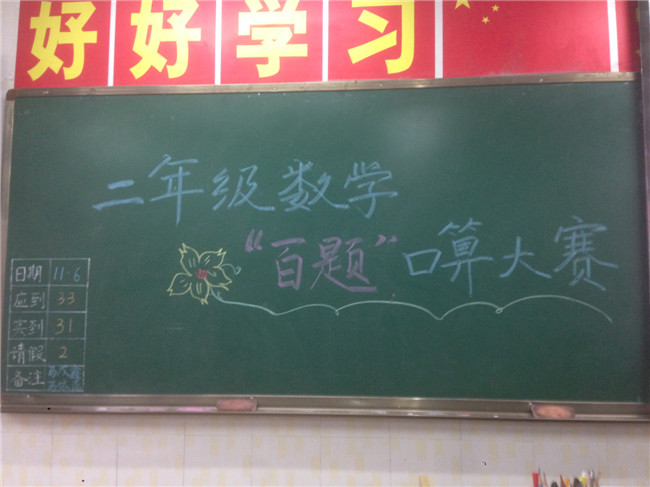 好好学习
二年级数学
“百题”口算大赛
日期 11·6
应到 33
实到 31
请假 2
备注